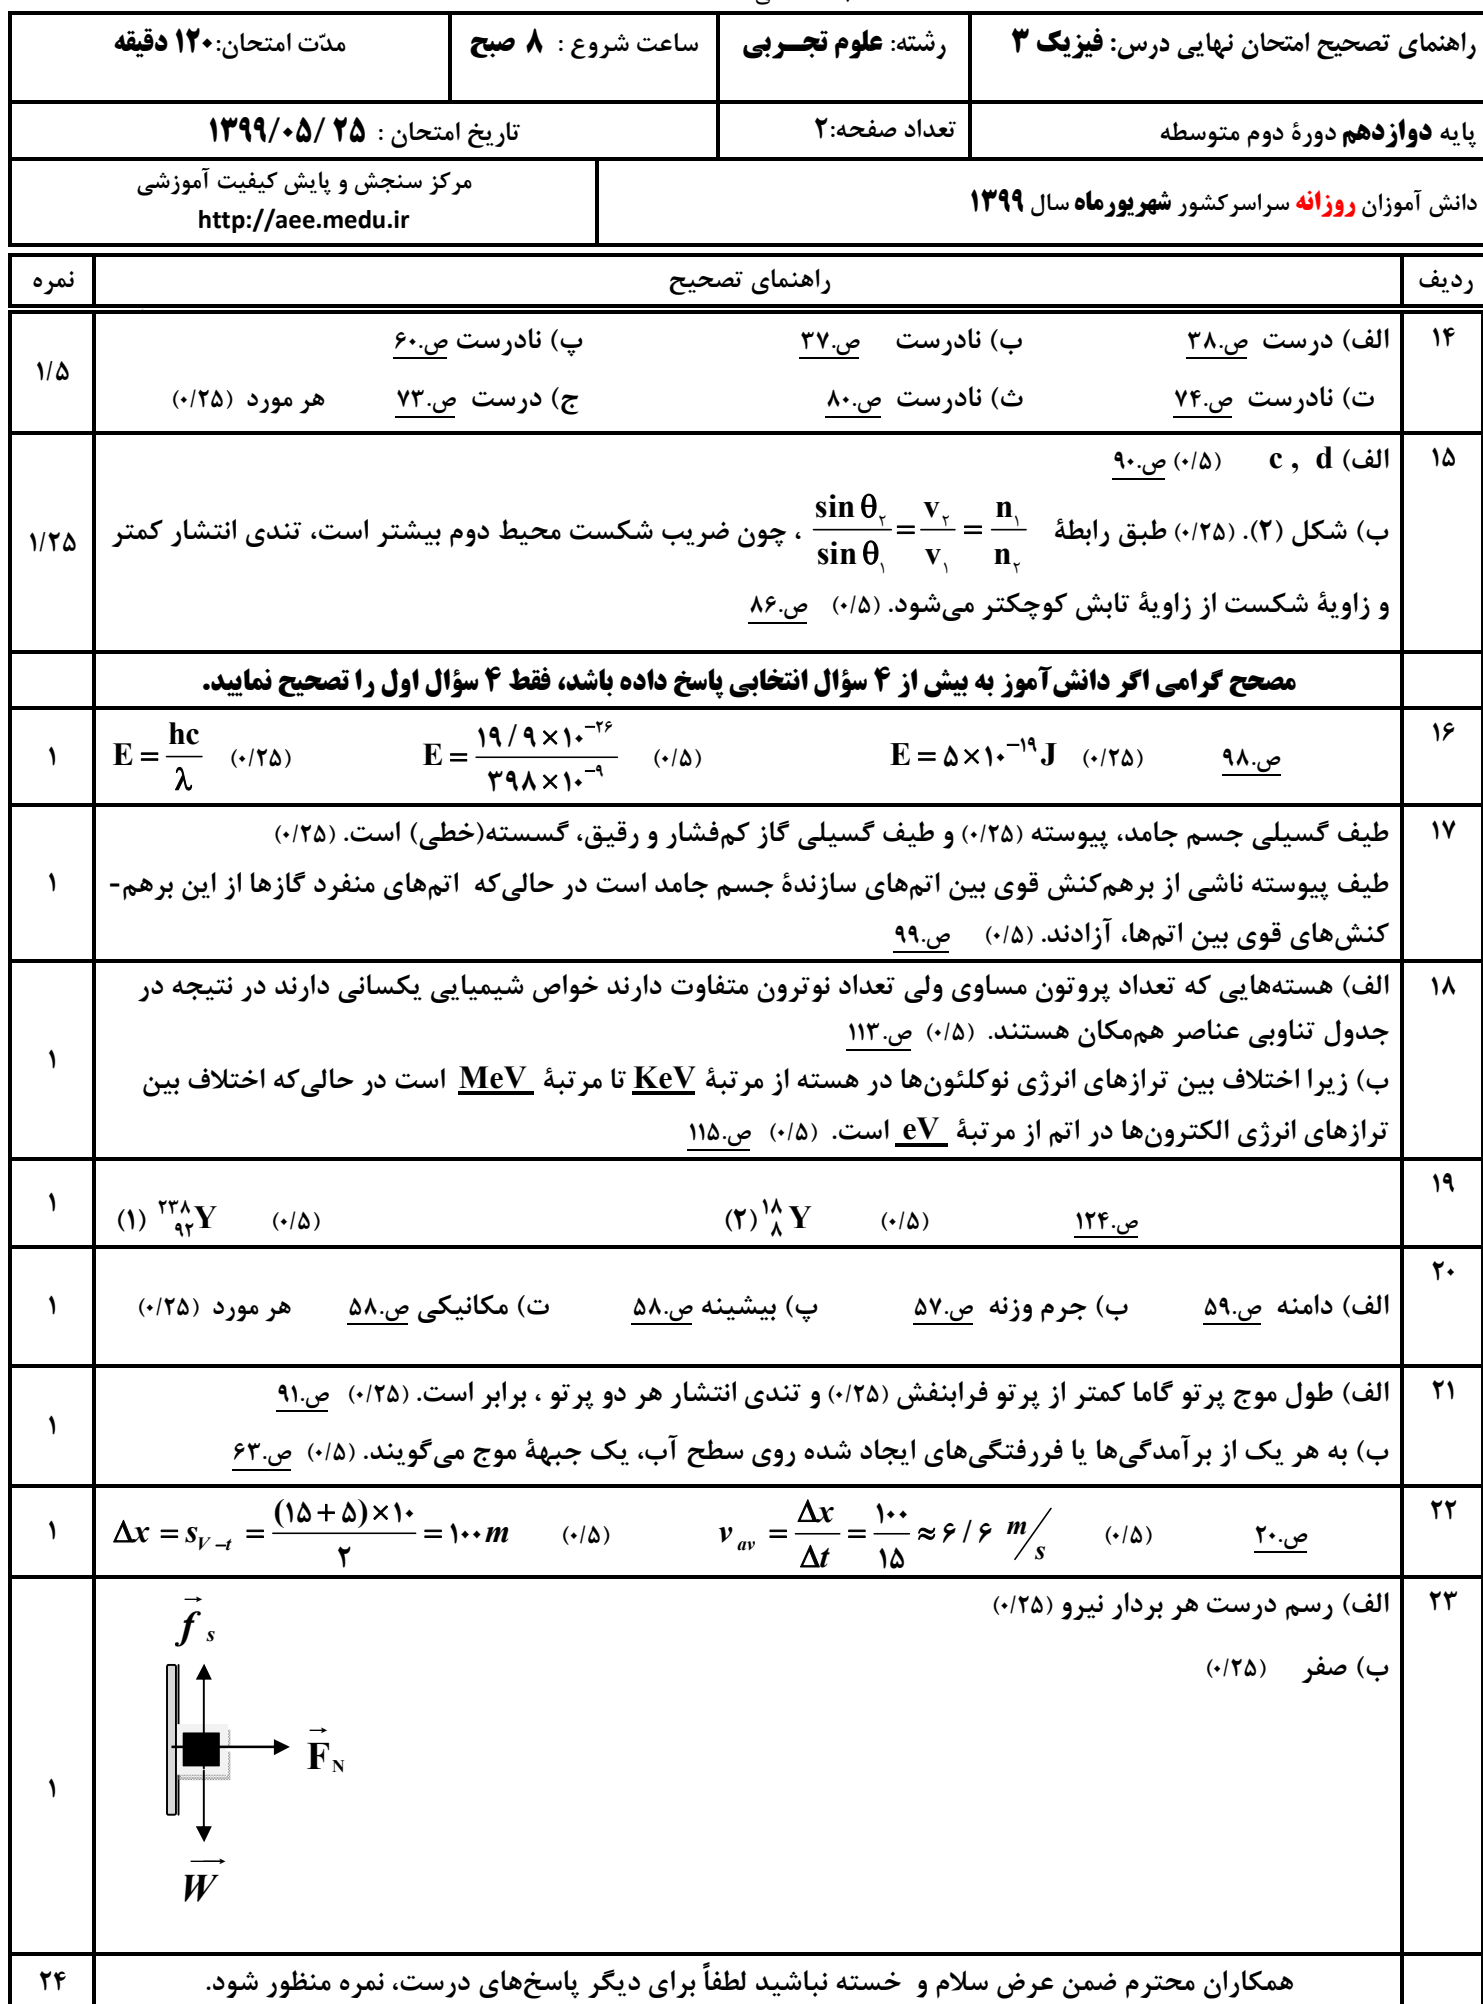 راهنمای تصحیح امتحان نهایی درس: فیزیک ۳ رشته: علوم تجــربی ساعت شروع : ۸ صبح مدّت امتحان: ۱۲۰ دقیقه
پایه دوازدهم دورهٔ دوم متوسطه تعداد صفحه:۲ تاریخ امتحان : ۲۵ /۱۳۹۹/۰۵
دانش آموزان روزانه سراسرکشور شهریورماه سال ۱۳۹۹ مرکز سنجش و پایش کیفیت آموزشی
http://aee.medu.ir
ردیف راهنمای تصحیح نمره
۱۴ الف) درست ص.۳۸ ب) نادرست ص.۳۷ پ) نادرست ص.۶۰
ت) نادرست ص.۷۴ ث) نادرست ص.۸۰ ج) درست ص.۷۳ هر مورد (۰/۲۵) ۱/۵
۱۵ الف) c , d (۰/۵) ص.۹۰
ب) شکل (۲). (۰/۲۵) طبق رابطهٔ sin θ۲ / sin θ۱ = v۲ / v۱ = n۱ / n۲ ، چون ضریب شکست محیط دوم بیشتر است، تندی انتشار کمتر ۱/۲۵
و زاویهٔ شکست از زاویهٔ تابش کوچکتر می‌شود. (۰/۵) ص.۸۶
مصحح گرامی اگر دانش‌آموز به بیش از ۴ سؤال انتخابی پاسخ داده باشد، فقط ۴ سؤال اول را تصحیح نمایید.
۱۶ E = hc / λ (۰/۲۵) E = ۱۹/۹×۱۰^−۲۶ / ۳۹۸×۱۰^−۹ (۰/۵) E = ۵×۱۰^−۱۹ J (۰/۲۵) ص.۹۸ ۱
۱۷ طیف گسیلی جسم جامد، پیوسته (۰/۲۵) و طیف گسیلی گاز کم‌فشار و رقیق، گسسته(خطی) است. (۰/۲۵)
طیف پیوسته ناشی از برهم‌کنش قوی بین اتم‌های سازندهٔ جسم جامد است در حالی‌که اتم‌های منفرد گازها از این برهم- ۱
کنش‌های قوی بین اتم‌ها، آزادند. (۰/۵) ص.۹۹
۱۸ الف) هسته‌هایی که تعداد پروتون مساوی ولی تعداد نوترون متفاوت دارند خواص شیمیایی یکسانی دارند در نتیجه در
جدول تناوبی عناصر هم‌مکان هستند. (۰/۵) ص.۱۱۳ ۱
ب) زیرا اختلاف بین ترازهای انرژی نوکلئون‌ها در هسته از مرتبهٔ KeV تا مرتبهٔ MeV است در حالی‌که اختلاف بین
ترازهای انرژی الکترون‌ها در اتم از مرتبهٔ eV است. (۰/۵) ص.۱۱۵
۱۹ (۱) ۲۳۸ ۹۲ Y (۰/۵) (۲) ۱۸ ۸ Y (۰/۵) ص.۱۲۴ ۱
۲۰ الف) دامنه ص.۵۹ ب) جرم وزنه ص.۵۷ پ) بیشینه ص.۵۸ ت) مکانیکی ص.۵۸ هر مورد (۰/۲۵) ۱
۲۱ الف) طول موج پرتو گاما کمتر از پرتو فرابنفش (۰/۲۵) و تندی انتشار هر دو پرتو ، برابر است. (۰/۲۵) ص.۹۱
ب) به هر یک از برآمدگی‌ها یا فررفتگی‌های ایجاد شده روی سطح آب، یک جبههٔ موج می‌گویند. (۰/۵) ص.۶۳ ۱
۲۲ Δx = s V−t = (۱۵+۵)×۱۰ / ۲ = ۱۰۰ m (۰/۵) v av = Δx / Δt = ۱۰۰ / ۱۵ ≈ ۶/۶ m/s (۰/۵) ص.۲۰ ۱
۲۳ الف) رسم درست هر بردار نیرو (۰/۲۵)
f s
ب) صفر (۰/۲۵)
F N
۱
W
همکاران محترم ضمن عرض سلام و خسته نباشید لطفاً برای دیگر پاسخ‌های درست، نمره منظور شود. ۲۴